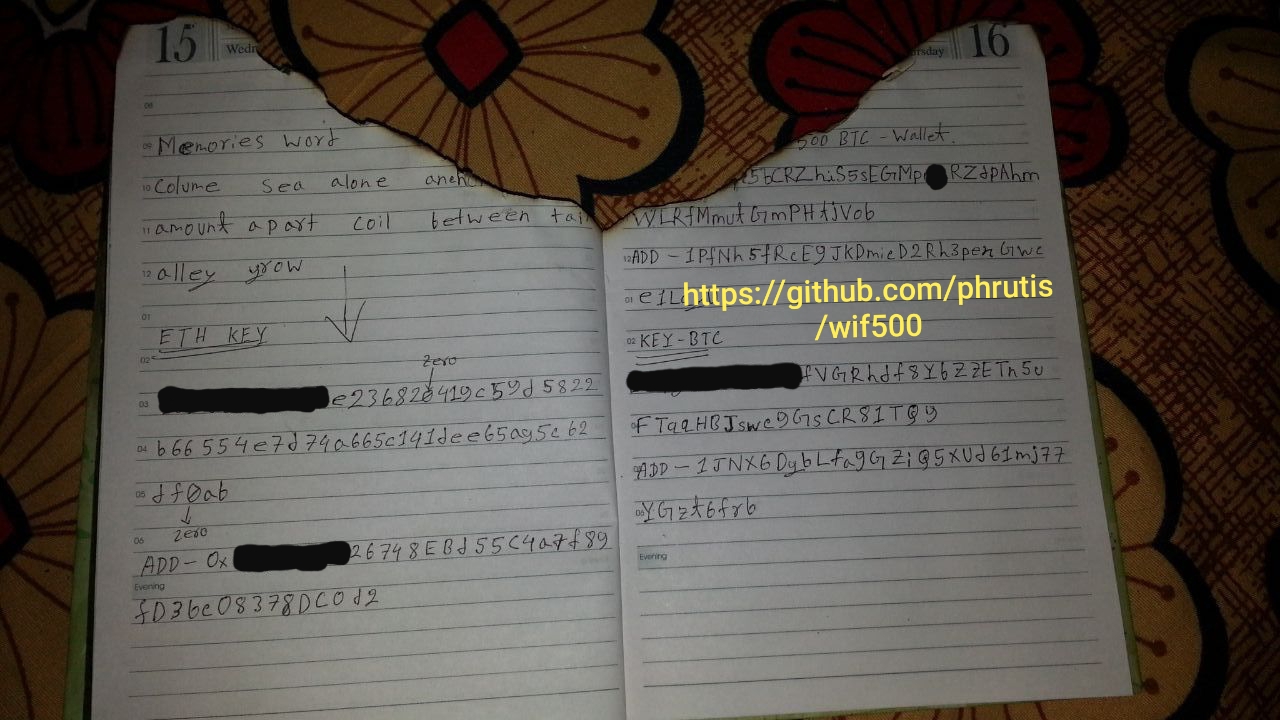 15
Wedn
09 Memories word
10 Colume sea alone anch
11 amount apart coil between tai
12 alley yrow
01
ETH KEY
02
zero
03 e236820419c59d5822
04 b66554e7d74a665c141dee65ag5c62
05 df0ab
06 zero
ADD - 0x 26748EBd55C4a7f89
Evening
fD36c08378DC0d2
rsday 16
500 BTC - Wallet.
5bCRZhiS5sEGMp RZdpAhm
WLRfMmutGmPHtjVob
12 ADD - 1PfNh5fRcE9JKDmieD2Rh3penGwc
01 e1L
https://github.com/phrutis
/wif500
02 KEY-BTC
fVGRhdf8Y6ZzETn5u
FTqaHBJswc9GsCR81TQ9
ADD - 1JNX6DgbLfa9GZiQ5XUd61mj77
YGzt6frb
Evening